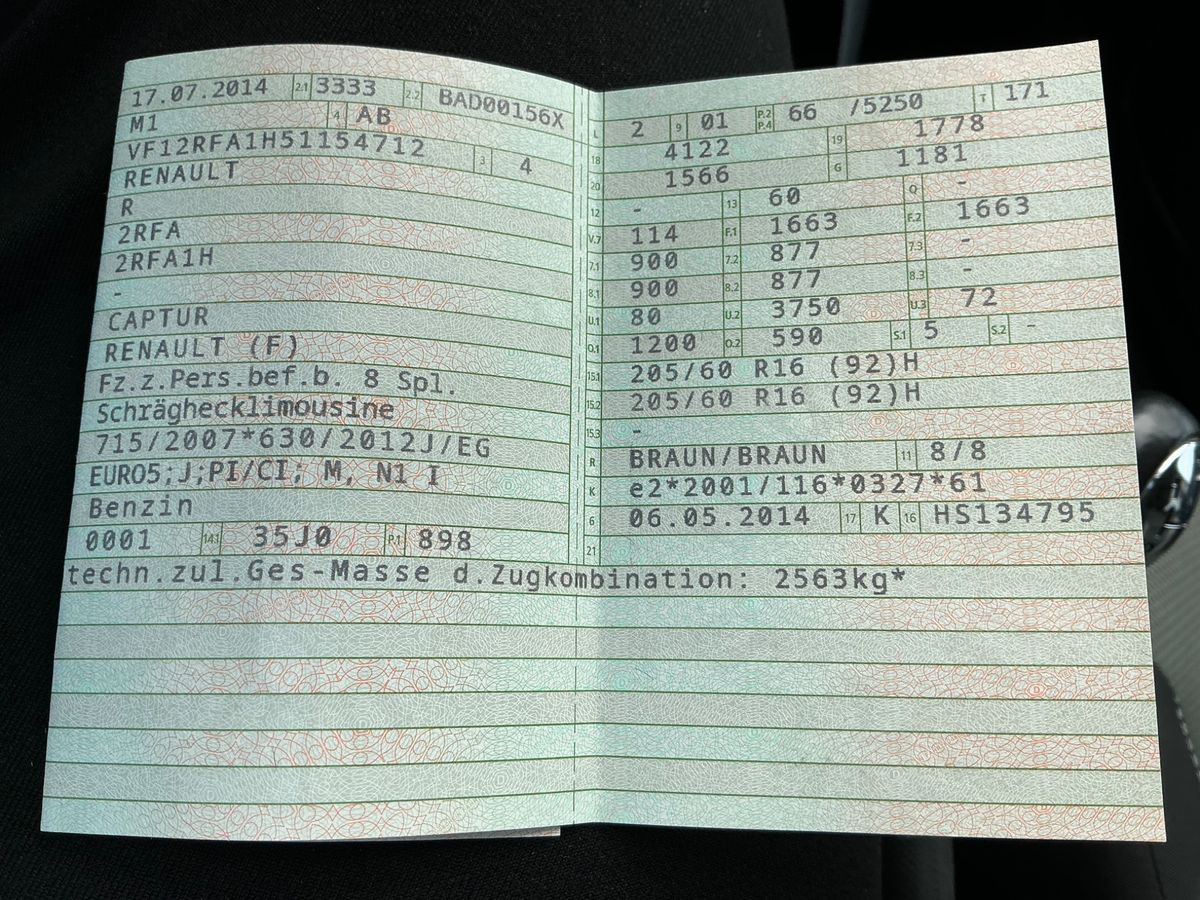 17.07.2014 2.1 3333 2.2 BAD00156X
M1 4 AB
VF12RFA1H51154712 3 4
RENAULT
R
2RFA
2RFA1H
-
CAPTUR
RENAULT (F)
Fz.z.Pers.bef.b. 8 Spl.
Schräghecklimousine
715/2007*630/2012J/EG
EURO5;J;PI/CI; M, N1 I
Benzin
0001 14.1 35J0 P.1 898
L 2 9 01 P.2 P.4 66 /5250 T 171
18 4122 19 1778
20 1566 G 1181
12 - 13 60 Q -
V.7 114 F.1 1663 F.2 1663
7.1 900 7.2 877 7.3 -
8.1 900 8.2 877 8.3 -
U.1 80 U.2 3750 U.3 72
O.1 1200 O.2 590 S.1 5 S.2 -
15.1 205/60 R16 (92)H
15.2 205/60 R16 (92)H
15.3 -
R BRAUN/BRAUN 11 8/8
K e2*2001/116*0327*61
6 06.05.2014 17 K 16 HS134795
21
techn.zul.Ges-Masse d.Zugkombination: 2563kg*